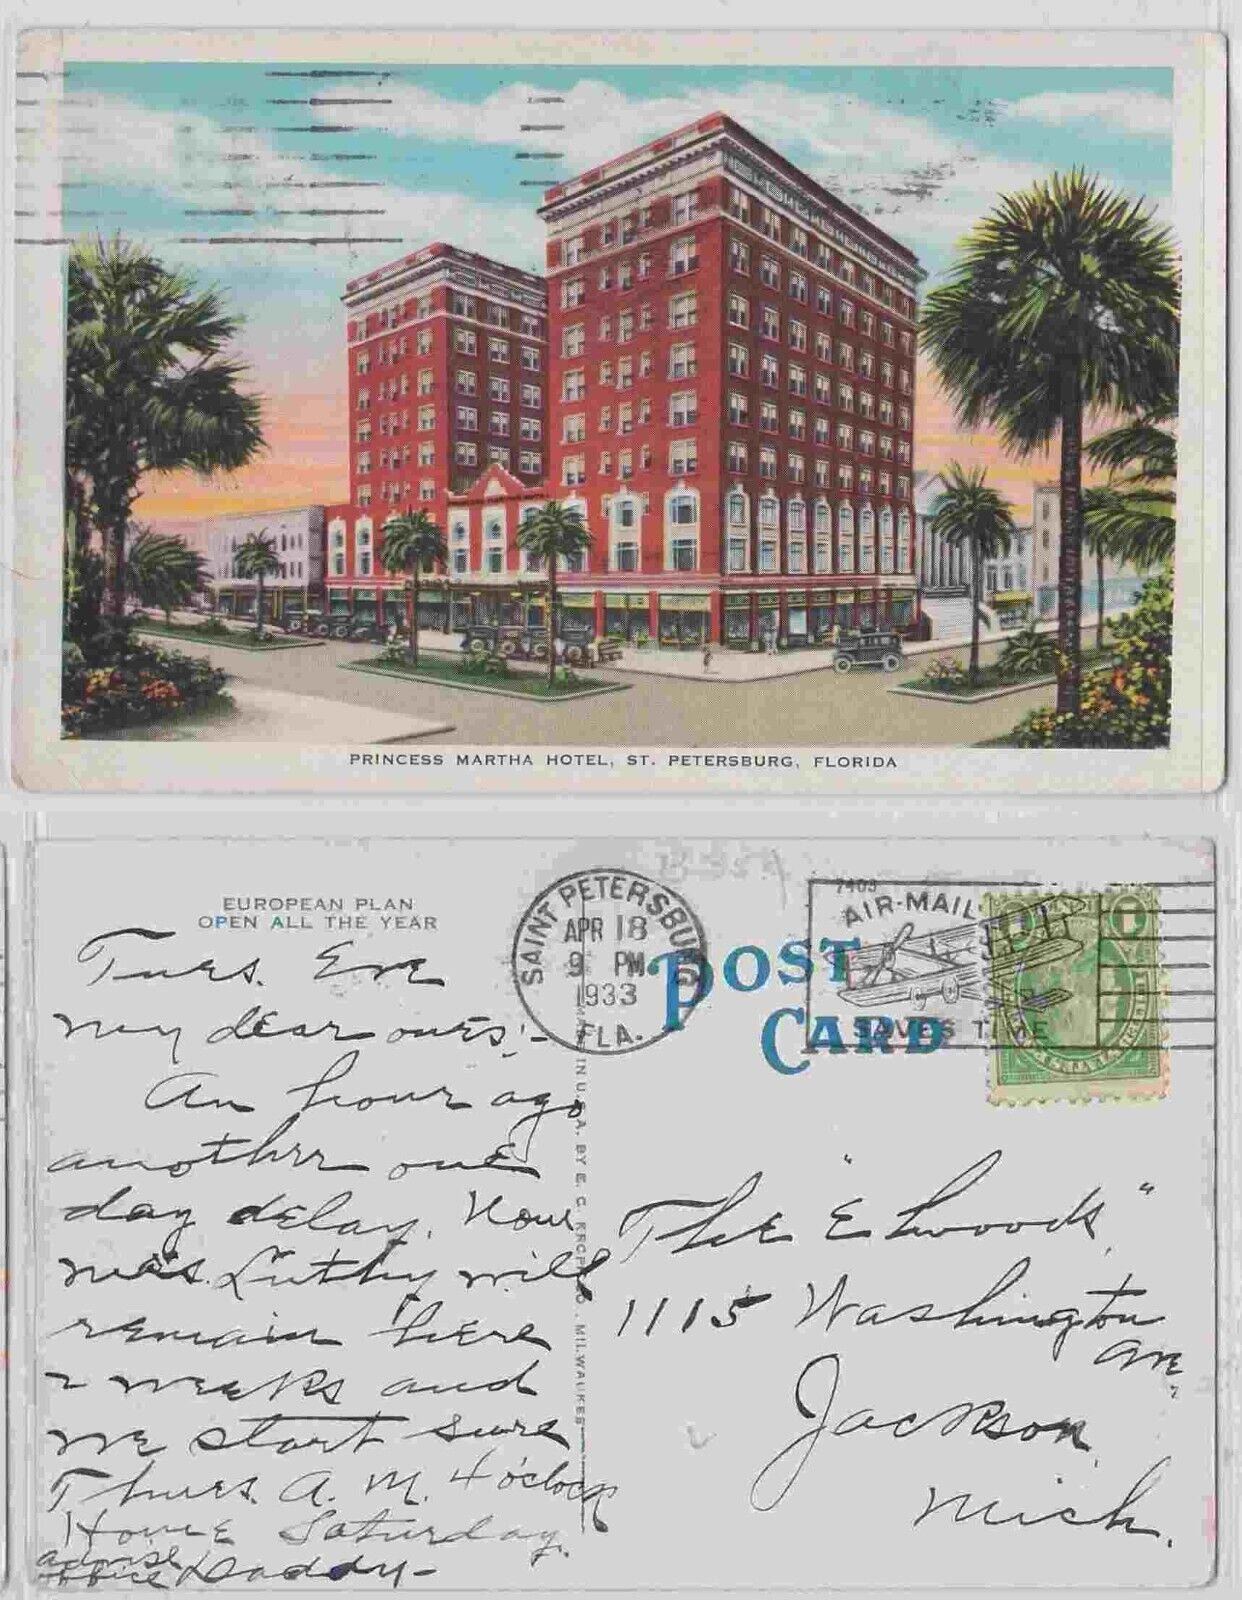 PRINCESS MARTHA HOTEL, ST. PETERSBURG, FLORIDA
EUROPEAN PLAN
OPEN ALL THE YEAR
SAINT PETERSBURG
APR 18
9 PM
1933
FLA.
POST
CARD
7403
AIR-MAIL
SAVES TIME
Tues. Eve
My dear ours:-
An hour ago
another one
day delay. Now
Mrs. Luthy will
remain here
2 weeks and
we start sure
Thurs. A. M. 4 o'clock
Home Saturday.
advise
office Daddy-
IN U.S.A. BY E. C. KROPP CO. MILWAUKEE
The "Elwoods",
1115 Washington
Ave,
Jackson,
Mich.